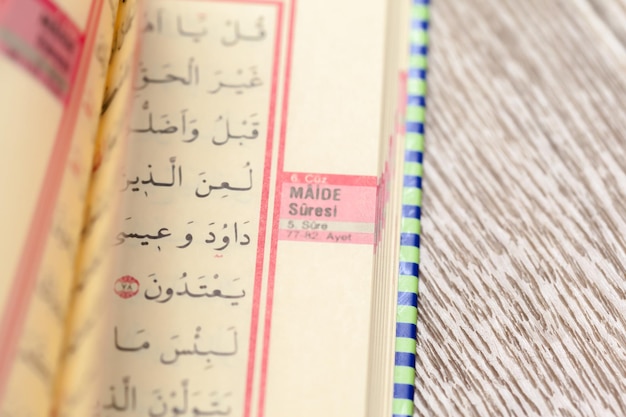 قُلْ يَٓا
غَيْرَ الْحَقِّ
قَبْلُ وَاَضَلُّ
لُعِنَ الَّذ۪ينَ
دَاوُدَ وَع۪يسَى
يَعْتَدُونَ ٧٨
لَبِئْسَ مَا
يَتَوَلَّوْنَ
6. Cüz
MÂİDE
Sûresi
5. Sûre
77-82. Ayet